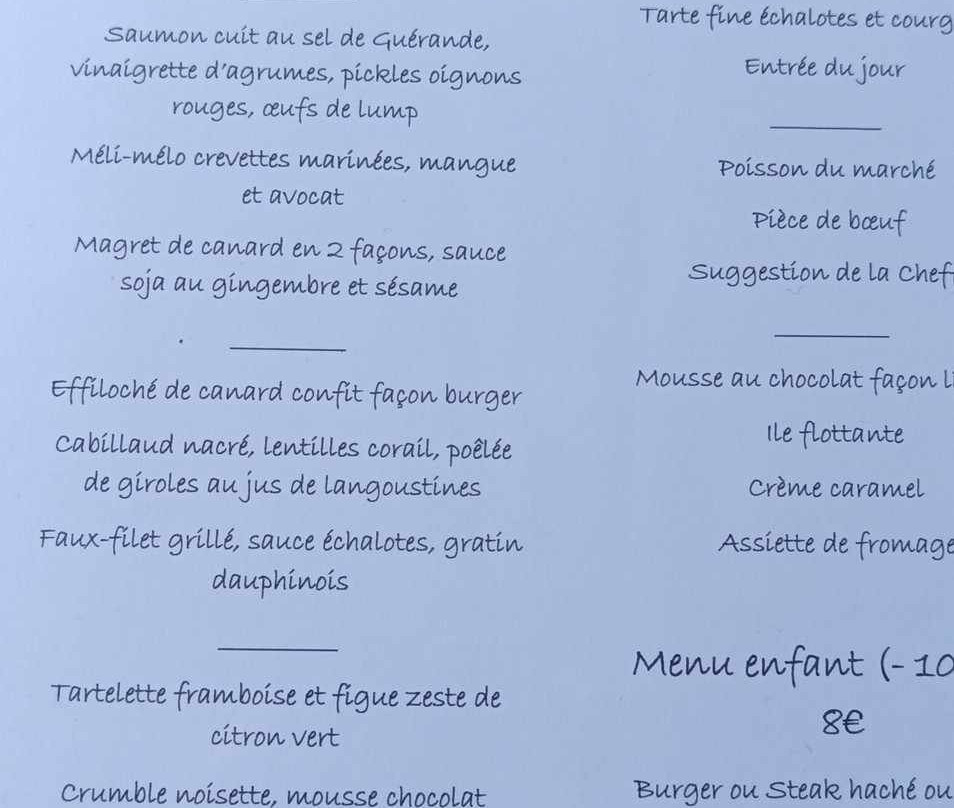 Saumon cuit au sel de Guérande,
vinaigrette d'agrumes, pickles oignons
rouges, œufs de lump
Méli-mélo crevettes marinées, mangue
et avocat
Magret de canard en 2 façons, sauce
soja au gingembre et sésame
Effiloché de canard confit façon burger
Cabillaud nacré, lentilles corail, poêlée
de giroles au jus de langoustines
Faux-filet grillé, sauce échalotes, gratin
dauphinois
Tartelette framboise et figue zeste de
citron vert
Crumble noisette, mousse chocolat
Tarte fine échalotes et courg
Entrée du jour
Poisson du marché
Pièce de bœuf
Suggestion de la Chef
Mousse au chocolat façon
Ile flottante
Crème caramel
Assiette de fromage
Menu enfant (- 10
8€
Burger ou Steak haché ou